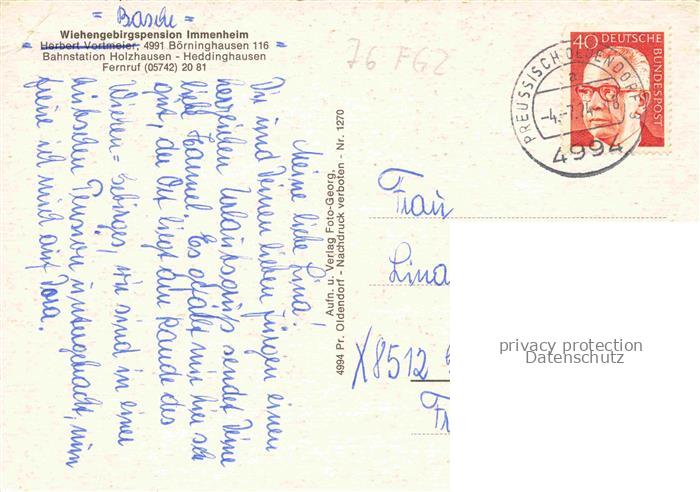 = Basche =
Wiehengebirgspension Immenheim
Herbert Vortmeier, 4991 Börninghausen 116
Bahnstation Holzhausen - Heddinghausen
Fernruf (05742) 20 81
76 FGZ
PREUSSISCH OLDENDORF
4994
40 DEUTSCHE
BUNDESPOST
Meine liebe Lina!
Du und Deinen lieben Jungen einen
herzlichen Urlaubsgruß sendet Deine
Es gefällt mir hier sehr
gut, der Ort liegt am Rande des
Wiehen=Gebirges, wir sind in einer
hübschen Pension untergebracht, nun
freue ich mich auf
Aufn. u. Verlag Foto-Georg,
4994 Pr. Oldendorf - Nachdruck verboten - Nr. 1270
Frau
Lina
X8512
Fr
privacy protection
Datenschutz